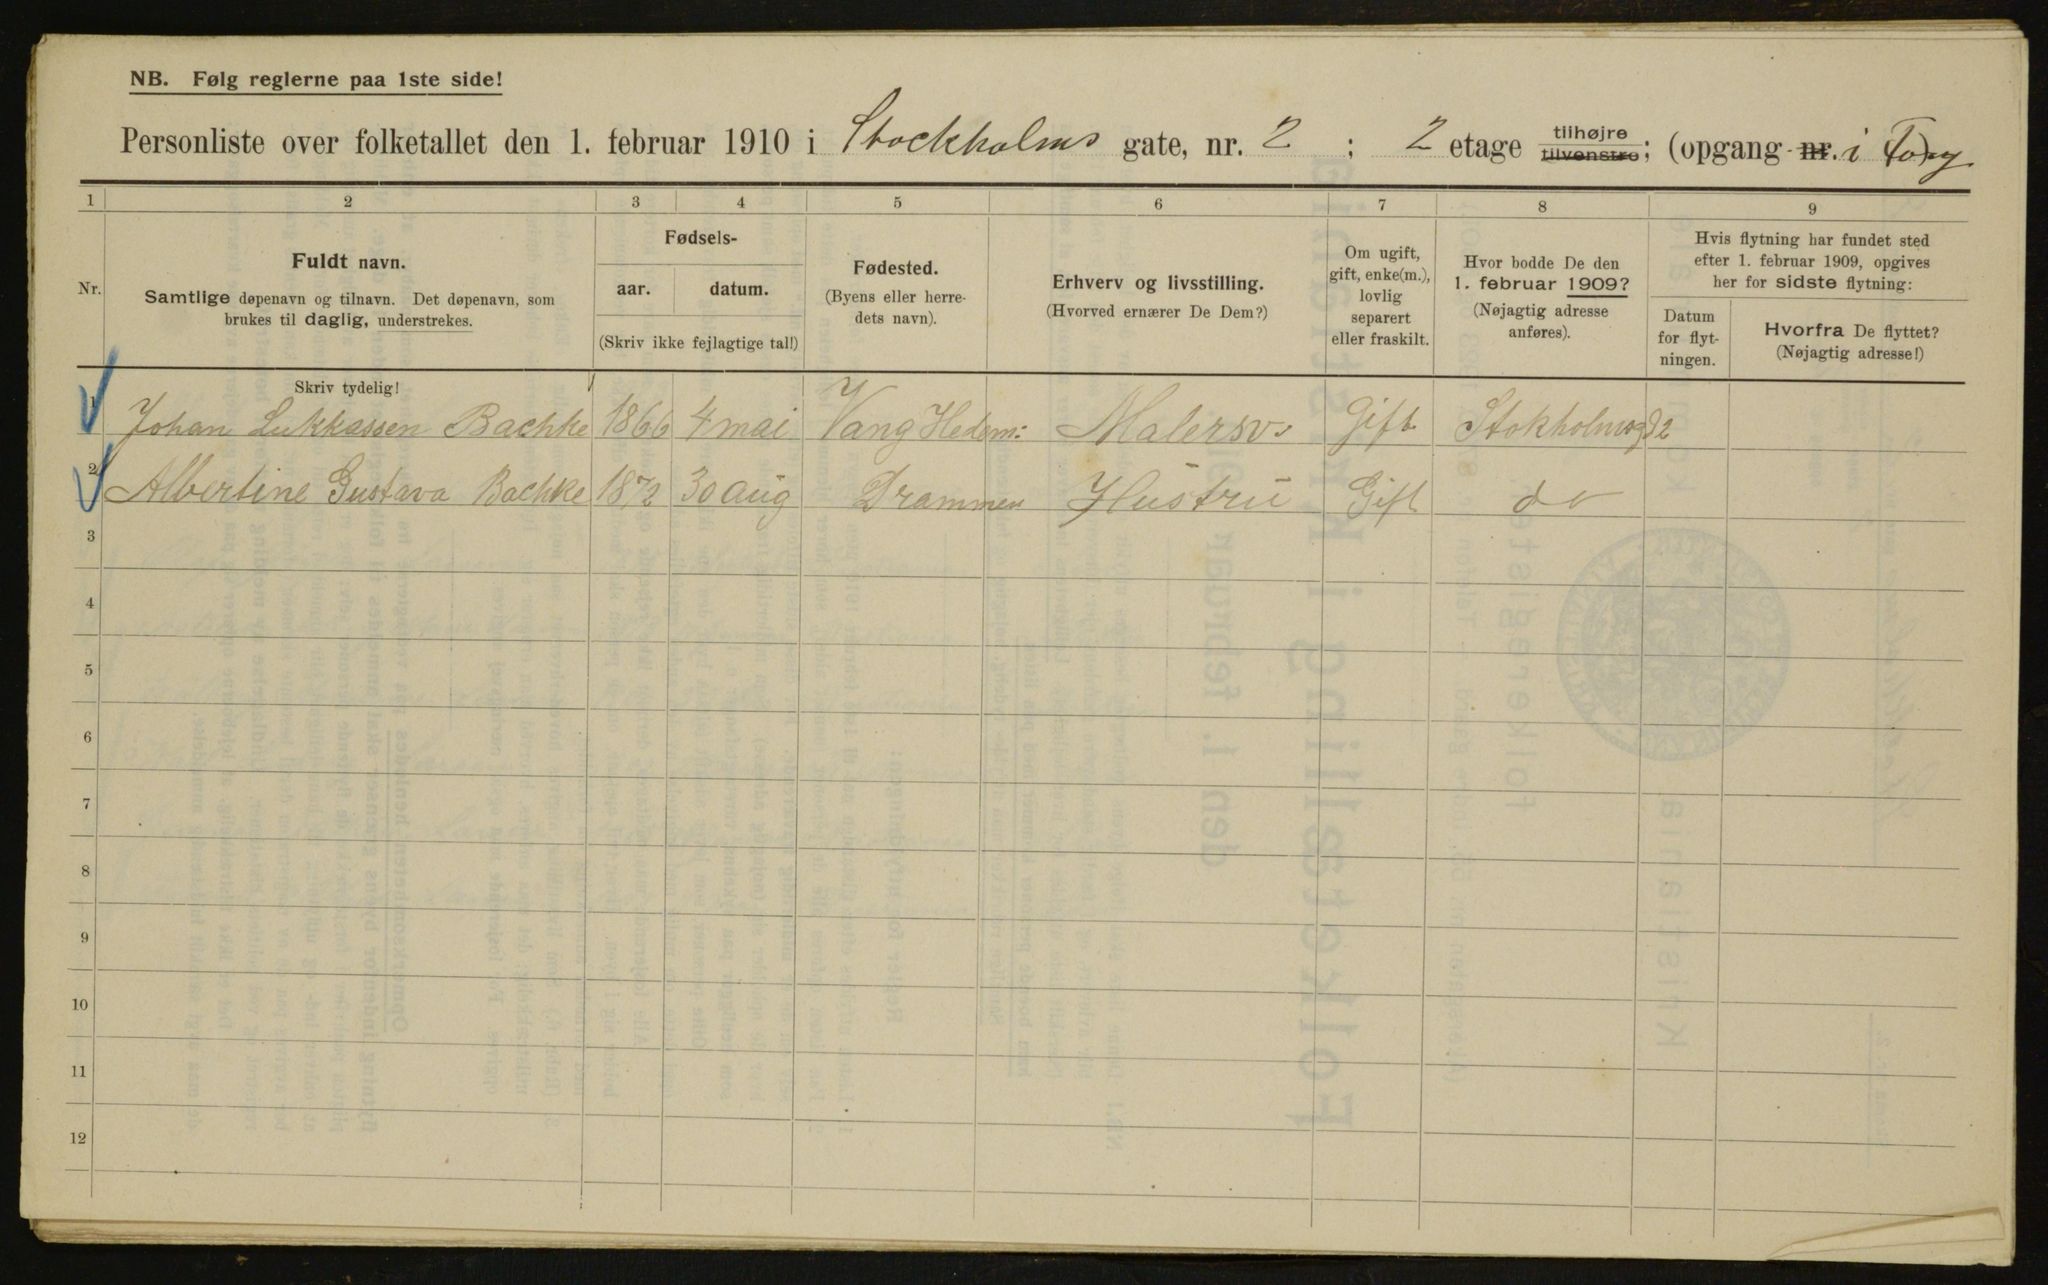 NB. Følg reglerne paa 1ste side!
Personliste over folketallet den 1. februar 1910 i Stockholms gate, nr. 2 ; 2 etage tilhøjre tilvenstre; (opgang nr. i
1 2 3 4 5 6 7 8 9
Nr.
Fuldt navn.
Samtlige døpenavn og tilnavn. Det døpenavn, som
brukes til daglig, understrekes.
Fødsels-
aar. datum.
(Skriv ikke fejlagtige tal!)
Fødested.
(Byens eller herre-
dets navn).
Erhverv og livsstilling.
(Hvorved ernærer De Dem?)
Om ugift,
gift, enke(m.),
lovlig
separert
eller fraskilt.
Hvor bodde De den
1. februar 1909?
(Nøjagtig adresse
anføres).
Hvis flytning har fundet sted
efter 1. februar 1909, opgives
her for sidste flytning:
Datum
for flyt-
ningen.
Hvorfra De flyttet?
(Nøjagtig adresse!)
Skriv tydelig!
1 Johan Lukkassen Bachke 1866 4 mai Vang Hedem: Malersv. Gift Stokholmsg 2
2 Albertine Gustava Bachke 1872 30 aug Drammen Hustru Gift do
3
4
5
6
7
8
9
10
11
12